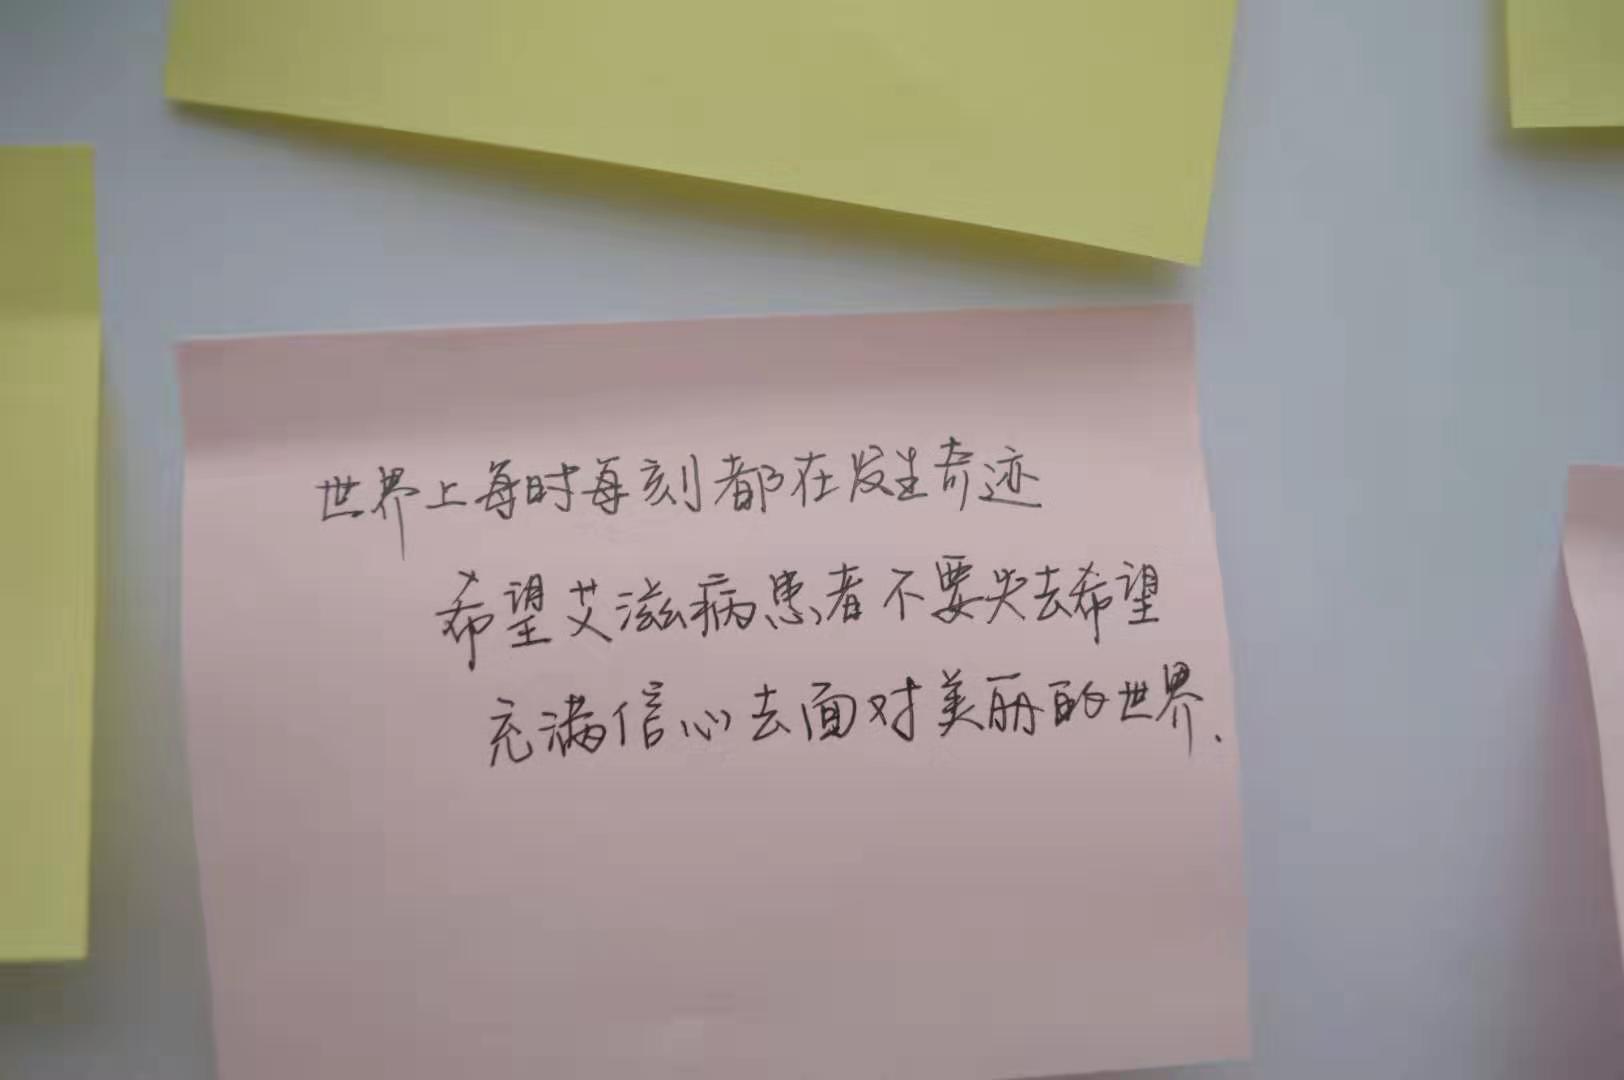 世界上每时每刻都在发生奇迹
希望艾滋病患者不要失去希望
充满信心去面对美丽的世界.